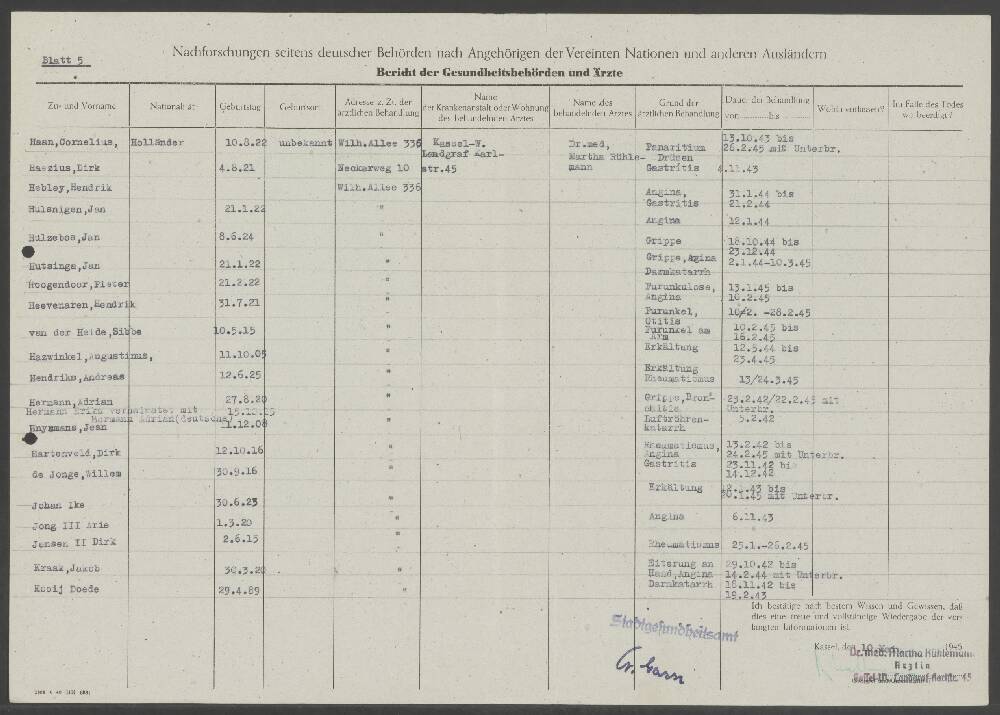 Blatt 5
Nachforschungen seitens deutscher Behörden nach Angehörigen der Vereinten Nationen und anderen Ausländern
Bericht der Gesundheitsbehörden und Ärzte
Zu- und Vorname Nationalität Geburtstag Geburtsort Adresse z. Zt. der ärztlichen Behandlung Name der Krankenanstalt oder Wohnung des behandelnden Arztes Name des behandelnden Arztes Grund der ärztlichen Behandlung Dauer der Behandlung von bis Wohin entlassen? Im Falle des Todes wo beerdigt?
Haan,Cornelius, Holländer 10.8.22 unbekannt Wilh.Allee 336 Kassel-W. Dr.med, Panaritium 13.10.43 bis
Landgraf Karl- Martha Rühle- Drüsen 26.2.45 mit Unterbr.
Haezius,Dirk 4.8.21 Neckarweg 10 str.45 mann Gastritis 4.11.43
Hebley,Hendrik Wilh.Allee 336 Angina, 31.1.44 bis
Hulsnigen,Jan 21.1.22 " Gastritis 21.2.44
Angina 12.1.44
Hulzebos,Jan 8.6.24 " Grippe 18.10.44 bis
23.12.44
Hutsinga,Jan 21.1.22 " Grippe,Agina 2.1.44-10.3.45
Darmkatarrh
Hoogendoor,Pieter 21.2.22 " Furunkulose, 13.1.45 bis
Angina 10.2.45
Heevenaren,Hendrik 31.7.21 " Furunkel, 10/2. -28.2.45
Otitis
van der Heide,Sibbe 10.5.15 " Furunkel am 10.2.45 bis
Arm 16.2.45
Hazwinkel,Augustinus, 11.10.05 " Erkältung 12.5.44 bis
23.4.45
Hendriks,Andreas 12.6.25 " Erkältung
Rheumatismus 13/24.3.45
Hermann,Adrian 27.8.20 " Grippe,Bron- 23.2.42/22.2.45 mit
Hermann Erika verheiratet mit 15.10.25 chitis Unterbr.
Hermann Adrian(deutsche)
Huysmans,Jean 1.12.08 " Luftröhren- 5.2.42
katarrh
Hartenveld,Dirk 12.10.16 " Rheumatismus, 13.2.42 bis
Angina 24.2.45 mit Unterbr.
de Jonge,Willem 30.9.16 " Gastritis 23.11.42 bis
14.12.42
Johan Ike 30.6.23 " Erkältung 12.1.43 bis
30.1.45 mit Unterbr.
Jong III Arie 1.3.20 " Angina 6.11.43
Jansen II Dirk 2.6.15 " Rheumatismus 25.1.-26.2.45
Kraak,Jakob 30.3.20 " Eiterung an 29.10.42 bis
Hand,Angina 14.2.44 mit Unterbr.
Kooij Doede 29.4.89 Darmkatarrh 18.11.42 bis
19.2.43
Ich bestätige nach bestem Wissen und Gewissen, daß
dies eine treue und vollständige Wiedergabe der ver-
langten Informationen ist.
Stadtgesundheitsamt
Kassel, den 10. 1945
Dr. med. Martha Rühlemann
Ärztin
Kassel-W., Landgraf-Karlstr. 45